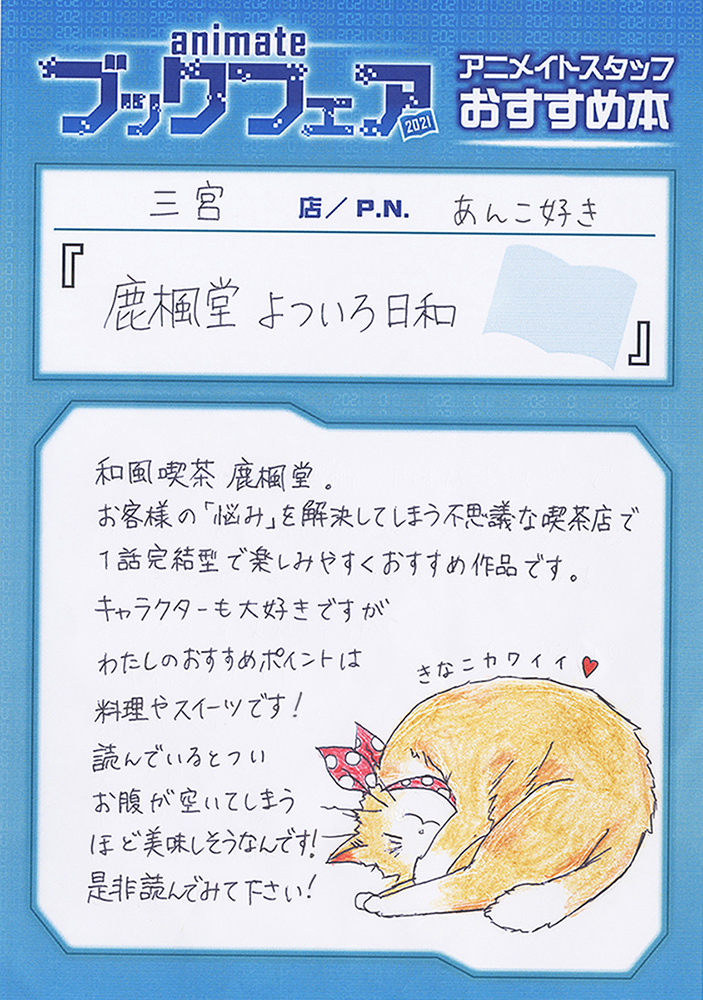 animate
ブックフェア
2021
アニメイトスタッフ
おすすめ本
三宮 店／P.N. あんこ好き
『鹿楓堂 よついろ日和』
和風喫茶 鹿楓堂。
お客様の「悩み」を解決してしまう不思議な喫茶店で
1話完結型で楽しみやすくおすすめ作品です。
キャラクターも大好きですが
わたしのおすすめポイントは
料理やスイーツです!
読んでいるとつい
お腹が空いてしまう
ほど美味しそうなんです!
是非読んでみて下さい!
きなこカワイイ♥